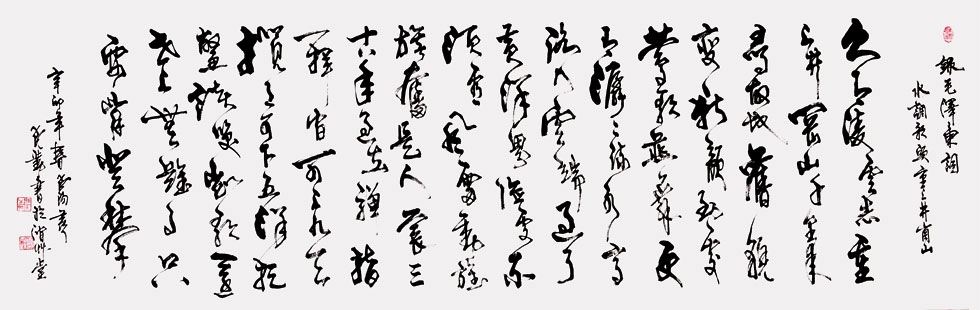 錄毛澤東詞
水調歌頭重上井崗山
久有凌雲志重
上井岡山千里來
尋故地舊貌
變新顏到處
鶯歌燕舞更
有潺潺流水高
路入雲端過了
黃洋界險處不
須看風雷動旌
旗奮是人寰三
十八年過去彈指
一揮間可上九天
攬月可下五洋捉
鱉談笑凱歌還
世上無難事只
要肯登攀
辛卯年
書於 堂